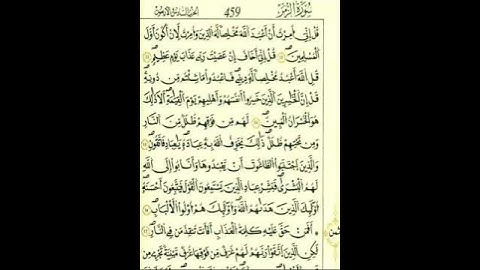 سُورَةُ الزُّمَرِ 459 الحزب السادس والأربعون
قُلِ انِّيَ أُمِرْتُ أَنَ اَعْبُدَ اَللَّهَ مُخْلِصاً لَّهُ اُلدِّينَ وَأُمِرْتُ لِأَنَ اَكُونَ أَوَّلَ
اَلْمُسْلِمِينَ قُلِ انِّيَ أَخَافُ إِنْ عَصَيْتُ رَبِّي عَذَابَ يَوْمٍ عَظِيمٍ
قُلِ اِللَّهَ أَعْبُدُ مُخْلِصاً لَّهُ دِينِي فَاعْبُدُواْ مَا شِئْتُم مِّن دُونِهِ
قُلِ انَّ اَلْخَٰسِرِينَ اَلذِينَ خَسِرُواْ أَنفُسَهُمْ وَأَهْلِيهِمْ يَوْمَ اَلْقِيَٰمَةِ أَلَا ذَٰلِكَ
هُوَ اَلْخُسْرَانُ اُلْمُبِينُ لَهُم مِّن فَوْقِهِمْ ظُلَلٌ مِّنَ اَلنَّارِ
وَمِن تَحْتِهِمْ ظُلَلٌ ذَٰلِكَ يُخَوِّفُ اُللَّهُ بِهِ عِبَادَهُ يَٰعِبَادِ فَاتَّقُونِ
وَالذِينَ اَجْتَنَبُواْ اُلطَّٰغُوتَ أَن يَعْبُدُوهَا وَأَنَابُواْ إِلَى اَللَّهِ
لَهُمُ اُلْبُشْرَىٰ فَبَشِّرْ عِبَادِ اِلذِينَ يَسْتَمِعُونَ اَلْقَوْلَ فَيَتَّبِعُونَ أَحْسَنَهُ
أُوْلَٰئِكَ اَلذِينَ هَدَىٰهُمُ اُللَّهُ وَأُوْلَٰئِكَ هُمُ أُوْلُواْ اُلَالْبَٰبِ
أَفَمَنْ حَقَّ عَلَيْهِ كَلِمَةُ اُلْعَذَابِ أَفَأَنتَ تُنقِذُ مَن فِي اِلنَّارِ
لَٰكِنِ اِلذِينَ اَتَّقَوْاْ رَبَّهُمْ لَهُمْ غُرَفٌ مِّن فَوْقِهَا غُرَفٌ مَّبْنِيَّةٌ تَجْرِي مِن
ثمن